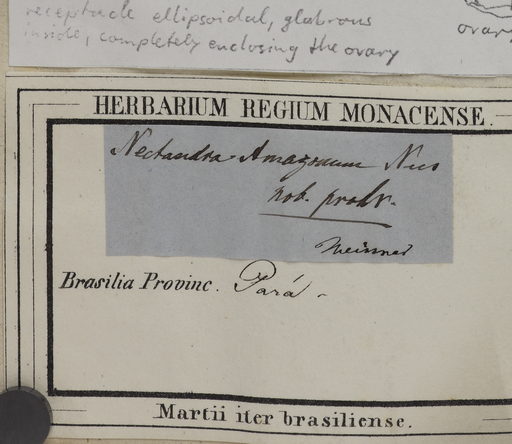 receptacle ellipsoidal, glabrous
inside, completely enclosing the ovary
ovary
HERBARIUM REGIUM MONACENSE.
Nectandra Amazonum Nees
nob. prodr.
Meisner
Brasilia Provinc. Pará.
Martii iter brasiliense.